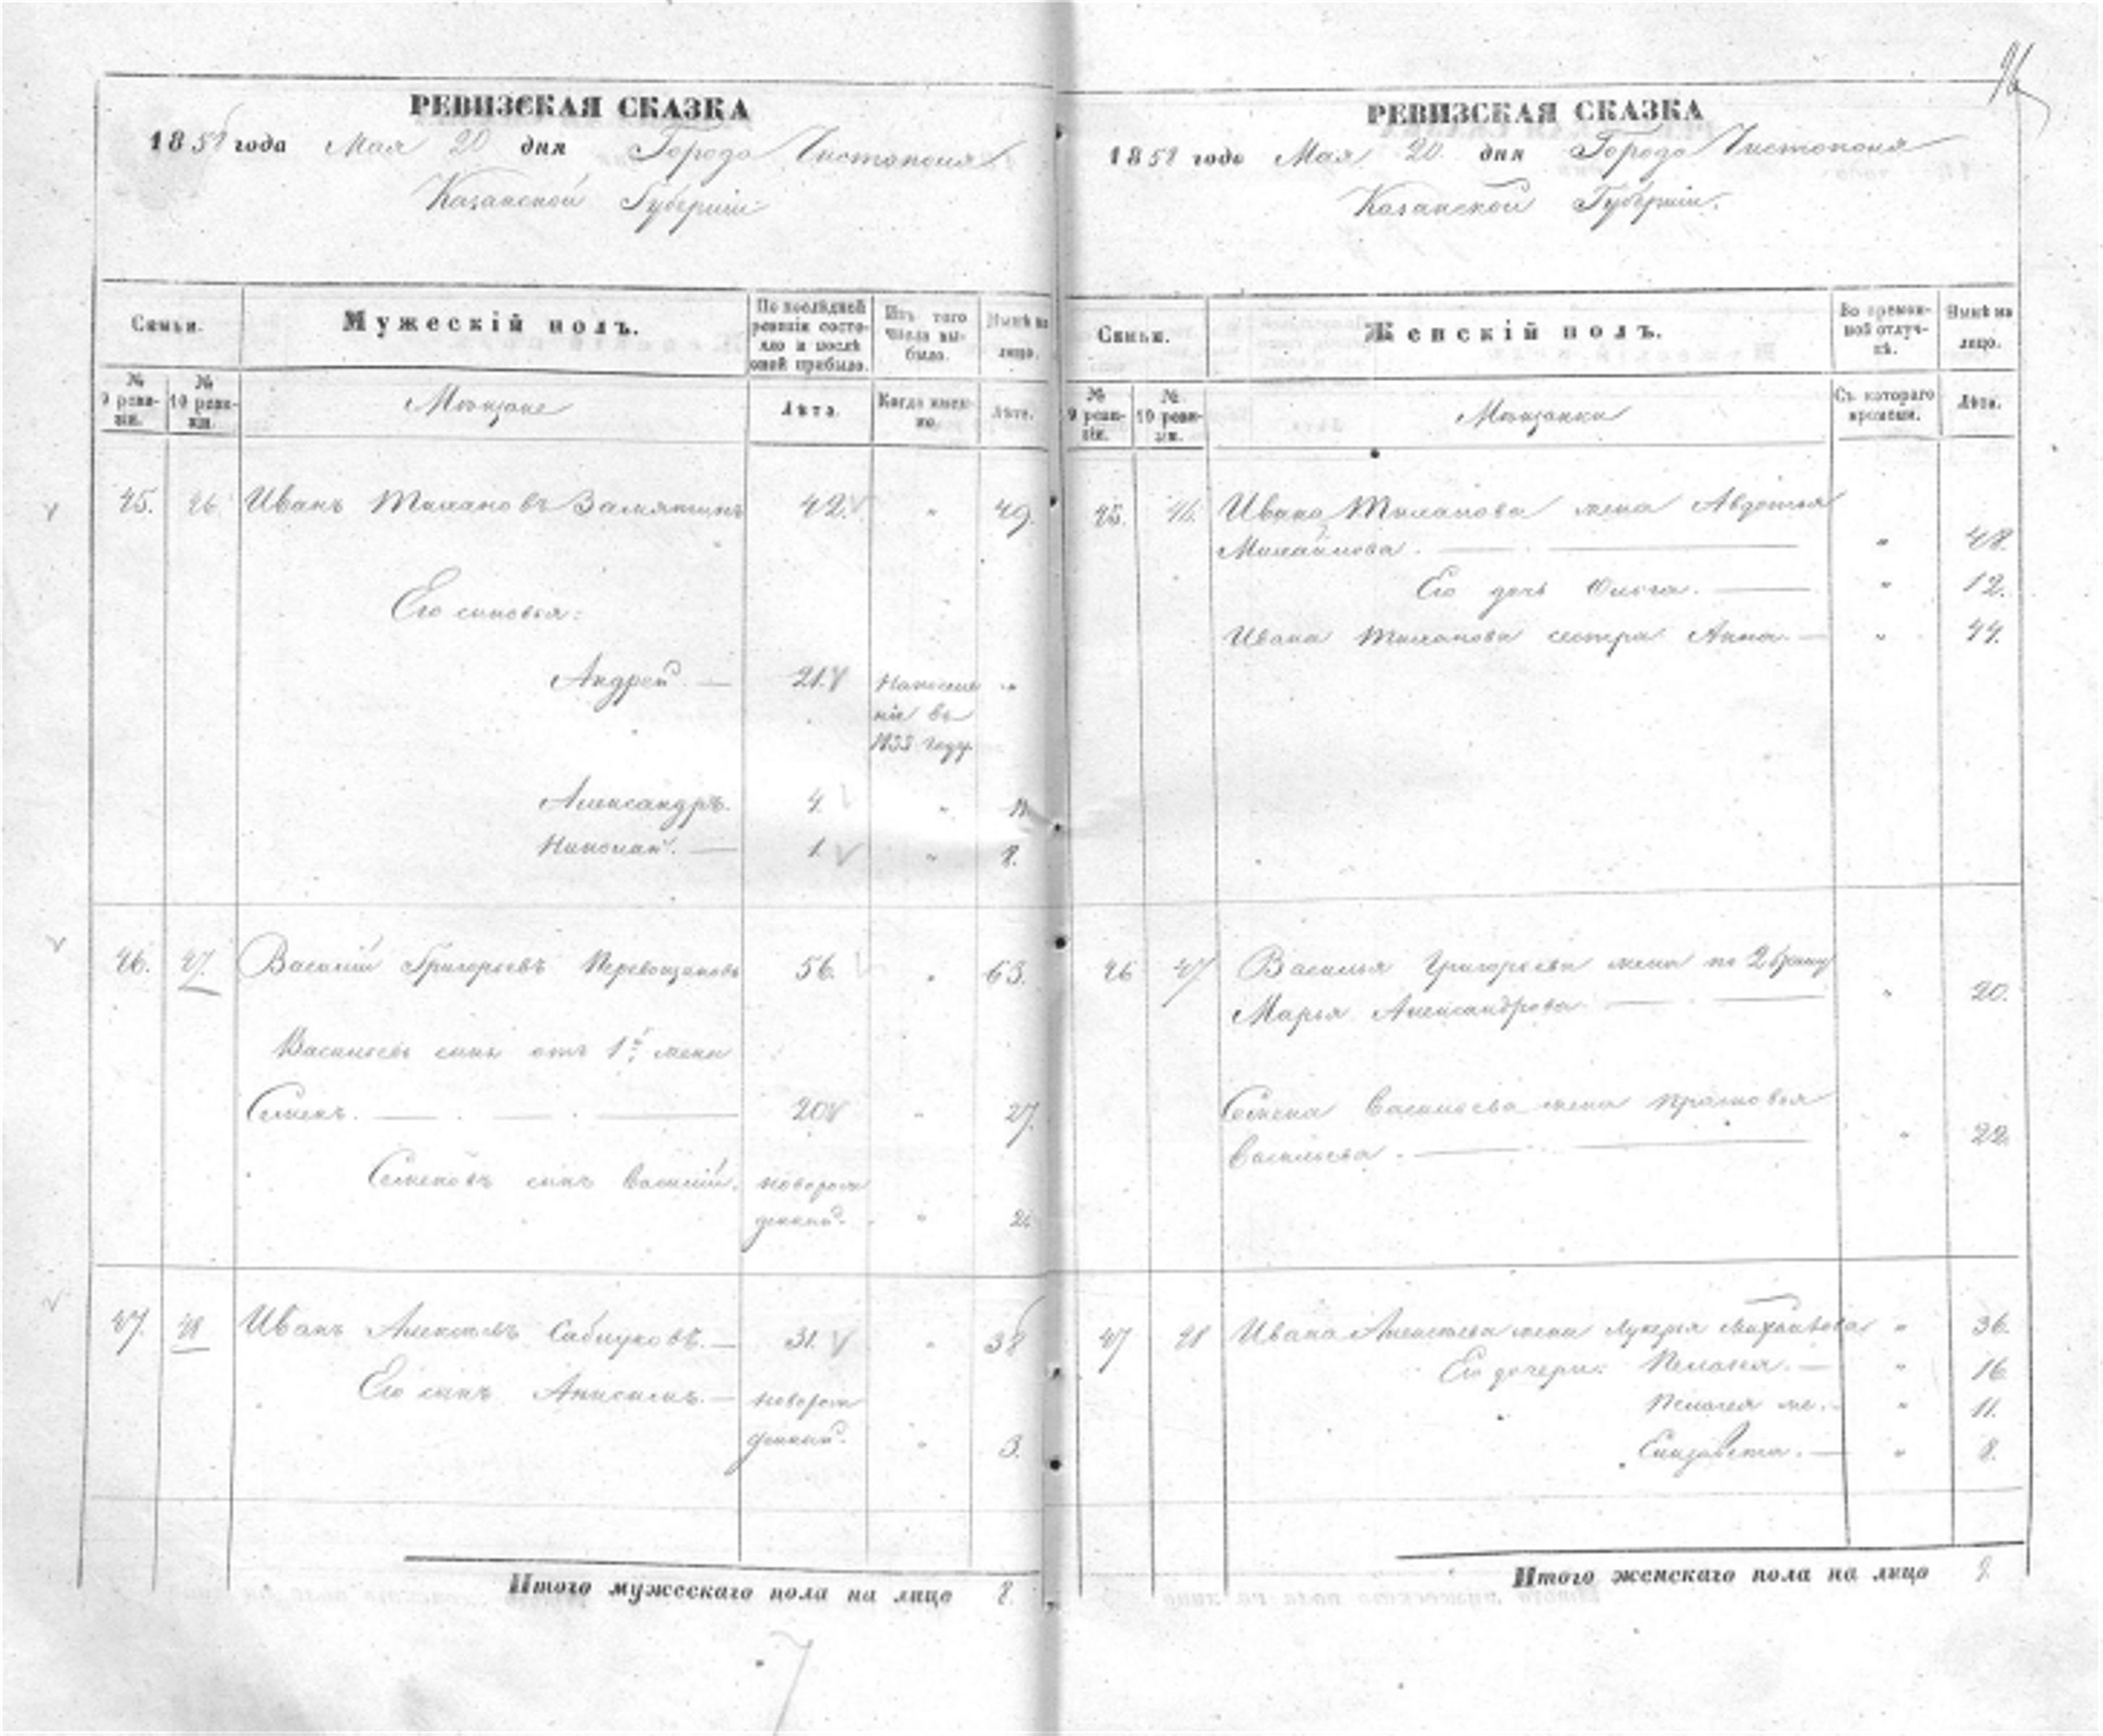 96
РЕВИЗСКАЯ СКАЗКА
1858 года Мая 20 дня Города Чистополя
Казанской Губернiи
Семьи.
Мужескiй полъ.
По послѣдней ревизiи состояло и послѣ оной прибыло.
Изъ того числа выбыло.
Нынѣ на лицо.
№ 9 ревизiи.
№ 10 ревизiи.
Мѣщане
Лѣта.
Когда именно.
Лѣта.
45. 46 Иванъ Замятинъ 42. " 49.
Его сыновья:
Андрей. — 21. "
въ
году
Александръ. 4. " 11.
Николай. — 1. " 8.
46. 47. Василiй Григорьевъ Перевощиковъ 56. " 63.
Васильевъ сынъ отъ 1й жены
Семенъ. — 20 " 27.
Семеновъ сынъ Василiй. новорож
денный. " 2.
47. 48 Иванъ Алексѣевъ — 31. " 38
Его сынъ Анисимъ. — новорож
денный. " 3.
Итого мужескаго пола на лицо 8.
РЕВИЗСКАЯ СКАЗКА
1858 года Мая 20 дня Города Чистополя
Казанской Губернiи.
Семьи.
Женскiй полъ.
Во временной отлучкѣ.
Нынѣ на лицо.
№ 9 ревизiи.
№ 10 ревизiи.
Мѣщанки
Съ котораго времени.
Лѣта.
45. 46. Ивана жена Авдотья
Михайлова. — " 48.
Его дочь Ольга. — " 12.
Ивана сестра Анна. — " 44.
46 47 Василья Григорьева жена по 2 браку
Марья Александрова — " 20.
Семена Васильева жена Прасковья
Васильева. — " 22.
47 48 Ивана Алексѣева жена Лукерья Михайлова " 36.
Его дочери: Пелагея. — " 16
Пелагея же. — " 11.
Елизавета. — " 8.
Итого женскаго пола на лицо 9.